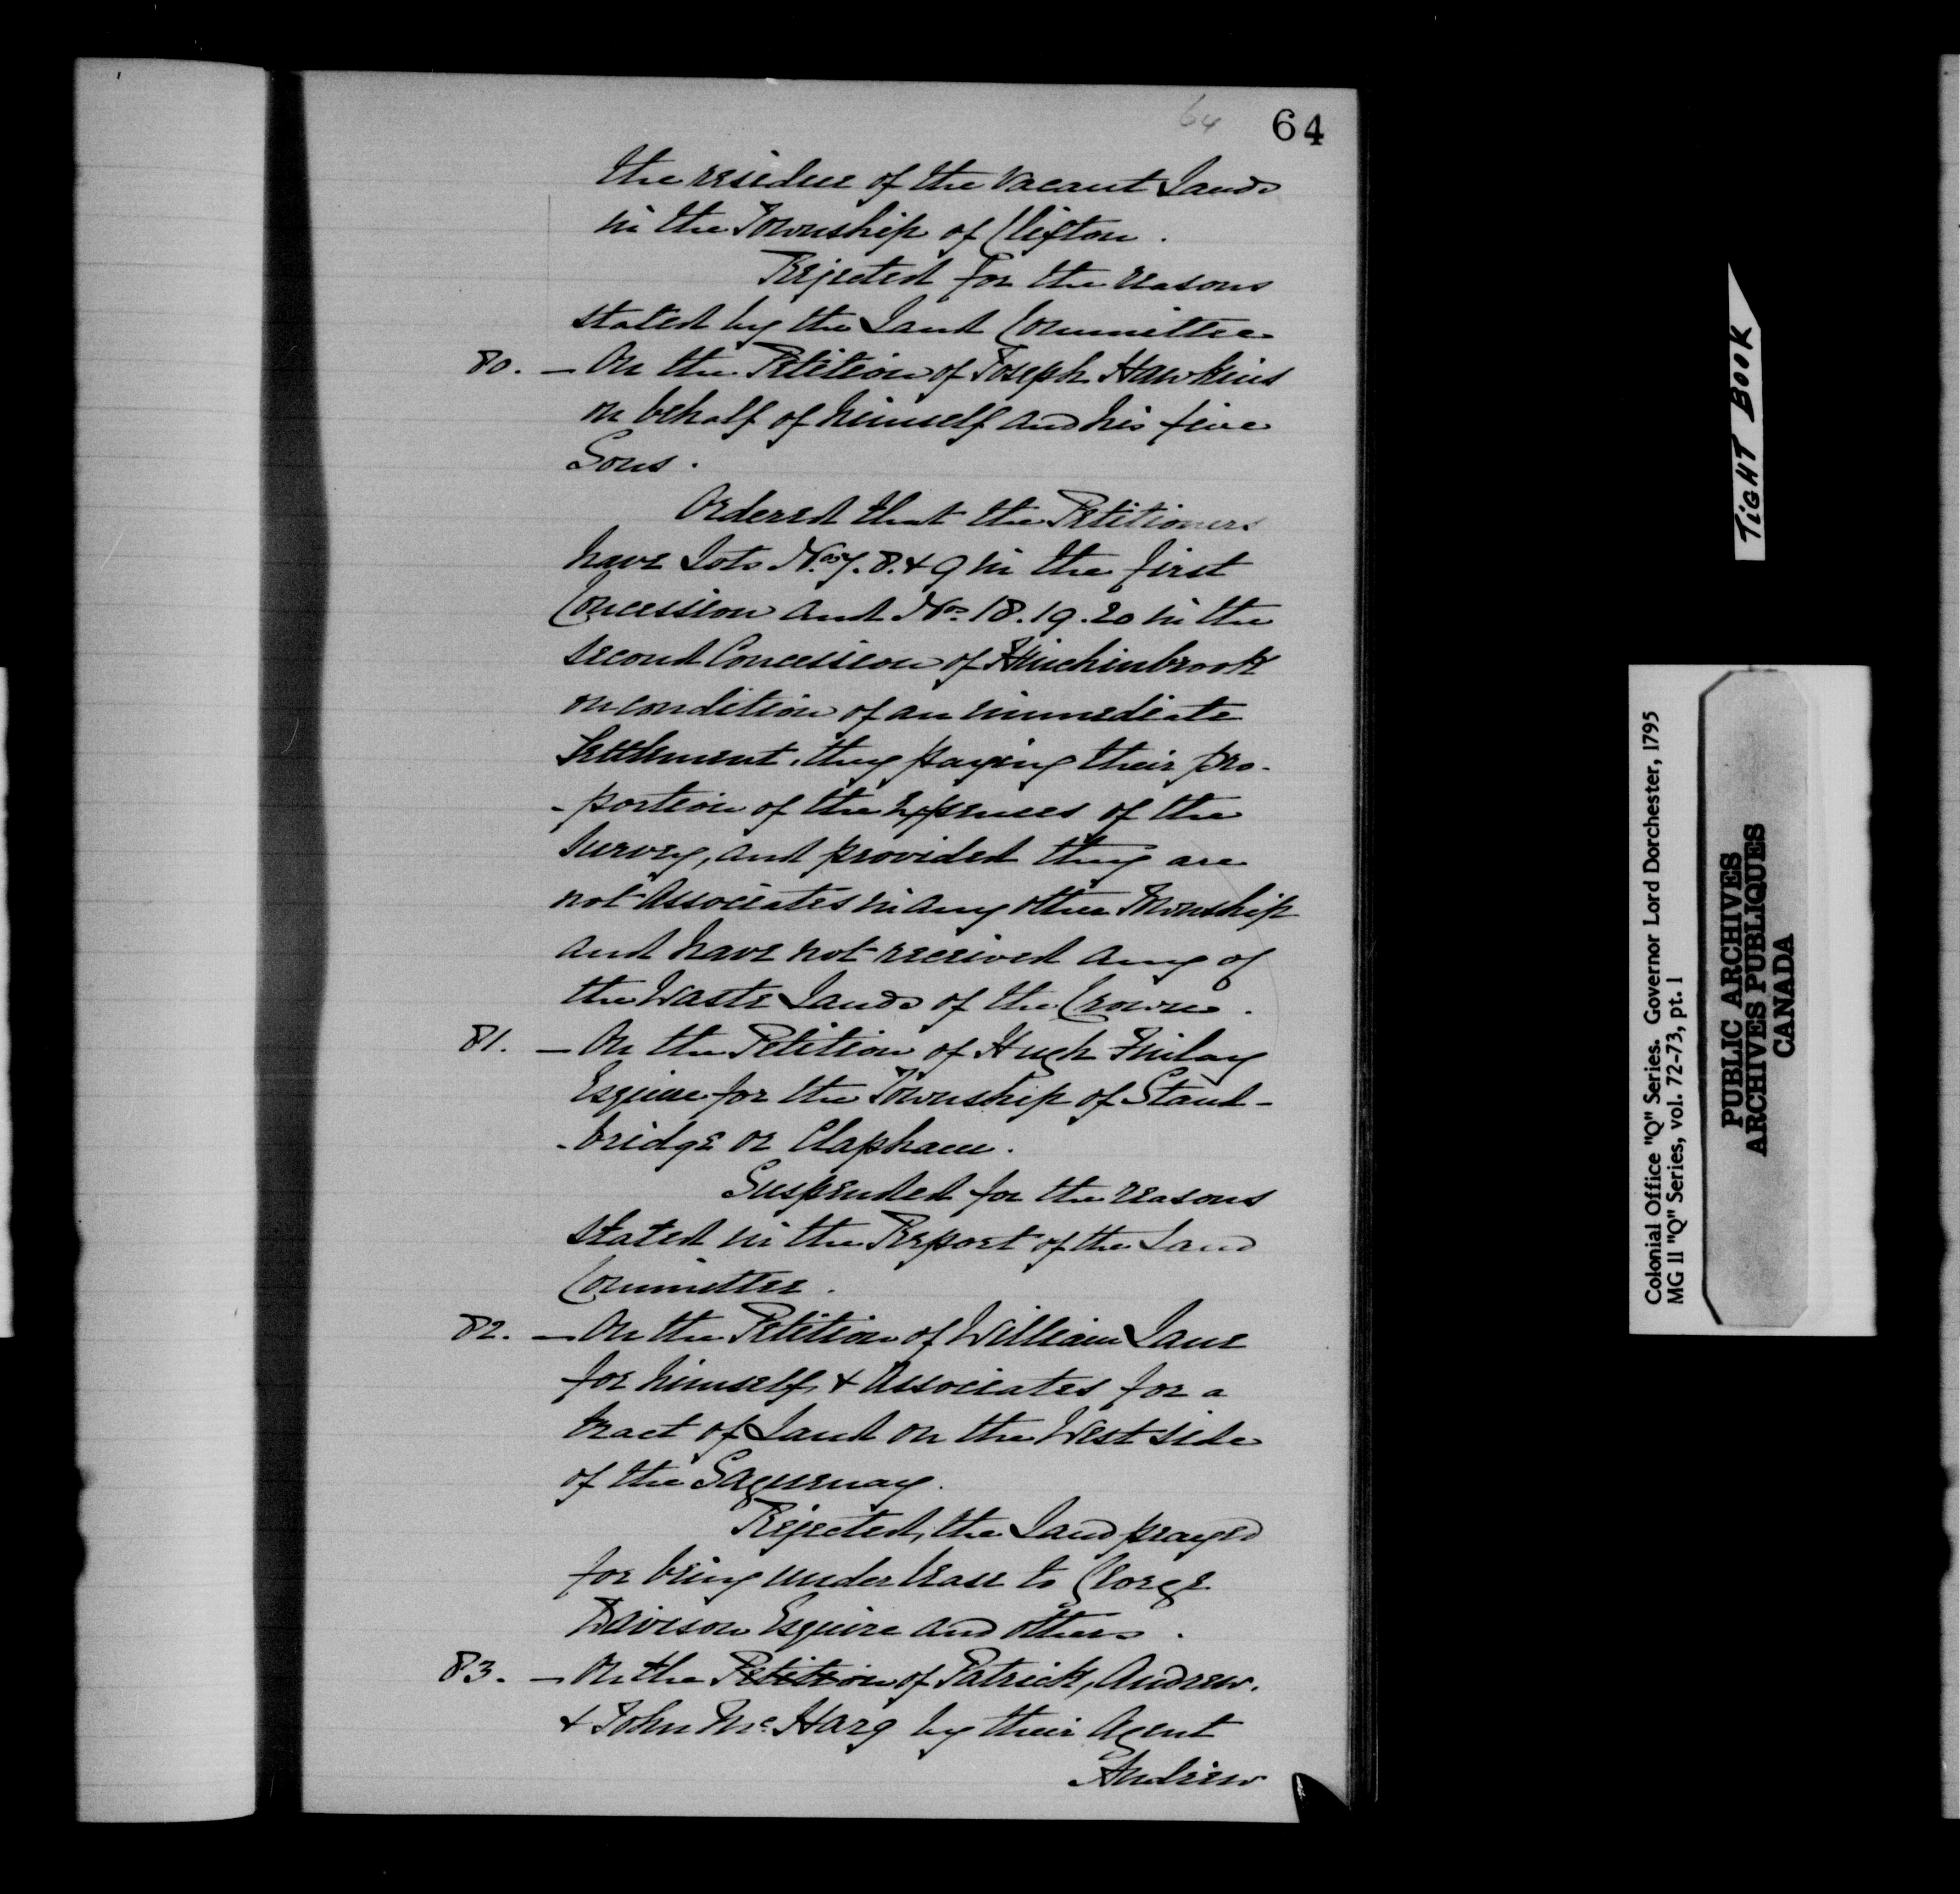 64 64
the residue of the Vacant Lands
in the Township of Clifton.
Rejected for the reasons
stated by the Land Committee
80. — On the Petition of Joseph Hawkins
on behalf of himself and his five
Sons.
Ordered that the Petitioners
have Lots Nos. 7. 8. & 9 in the first
Concession and Nos. 18. 19. 20 in the
second Concession of Hinchinbrook
on condition of an immediate
Settlement, they paying their pro-
-portion of the Expences of the
Survey, and provided they are
not Associates in any other Township
and have not received any of
the Waste Lands of the Crown.
81. — On the Petition of Hugh Finlay
Esquire for the Township of Stand-
-bridge or Clapham.
Suspended for the reasons
stated in the Report of the Land
Committee.
82. — On the Petition of William Lane
for himself & Associates for a
tract of Land on the West side
of the Saguenay.
Rejected, the Land prayed
for being under lease to George
Davison Esquire and others.
83. — On the Petition of Patrick, Andrew,
& John McHarg by their Agent
Andrew
TIGHT BOOK
Colonial Office "Q" Series. Governor Lord Dorchester, 1795
MG 11 "Q" Series, vol. 72-73, pt. 1
PUBLIC ARCHIVES
ARCHIVES PUBLIQUES
CANADA